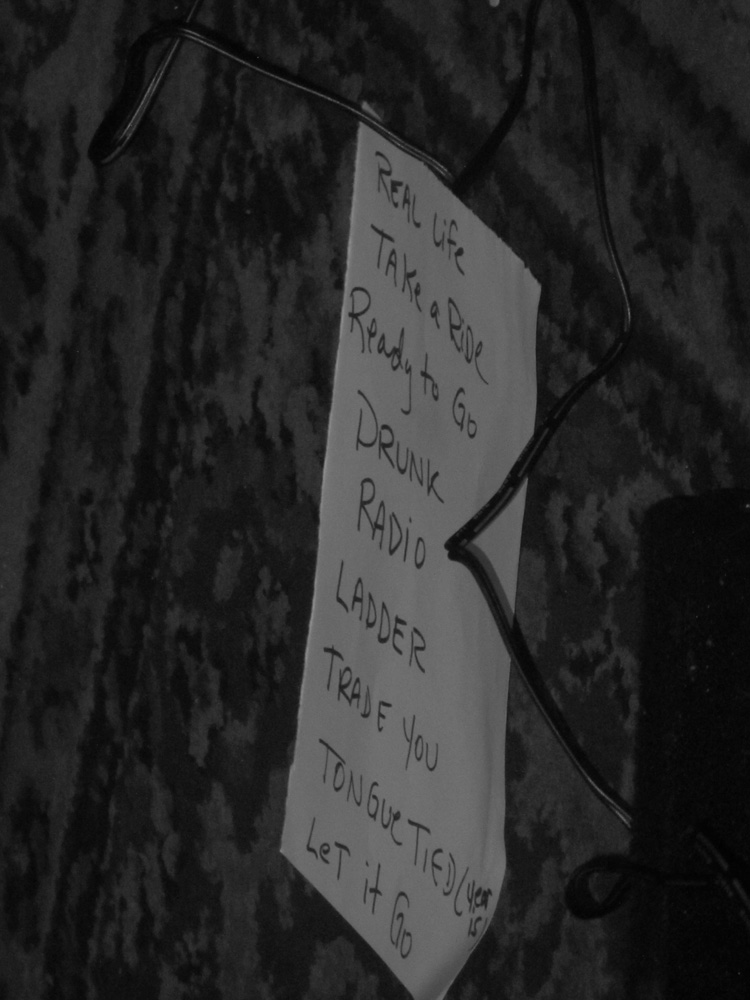 REAL Life
TAKe a RiDe
Ready to Go
DRUNK
RADiO
LADDER
TRADE YOU
TONGUe TIED (year
is)
LeT iT Go